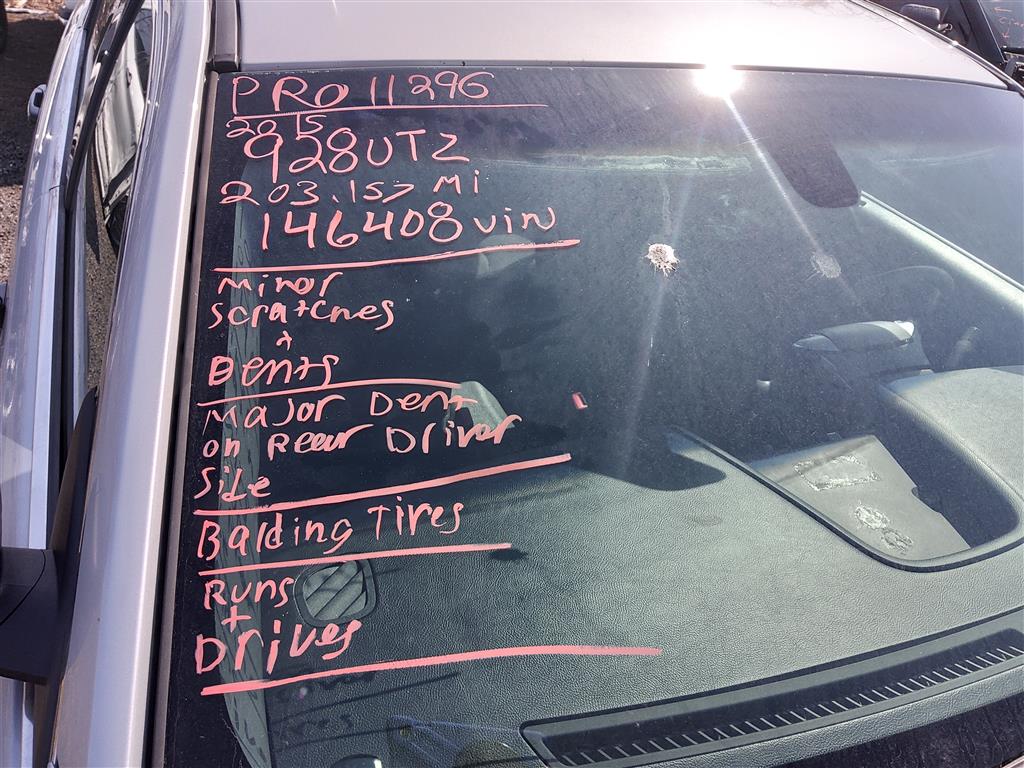 PRO 11296
2015
928UTZ
203.157 Mi
146408 Vin
Minor
Scratches
+
Dents
Major Dent
on Rear Driver
Side
Balding Tires
Runs
+
Drives